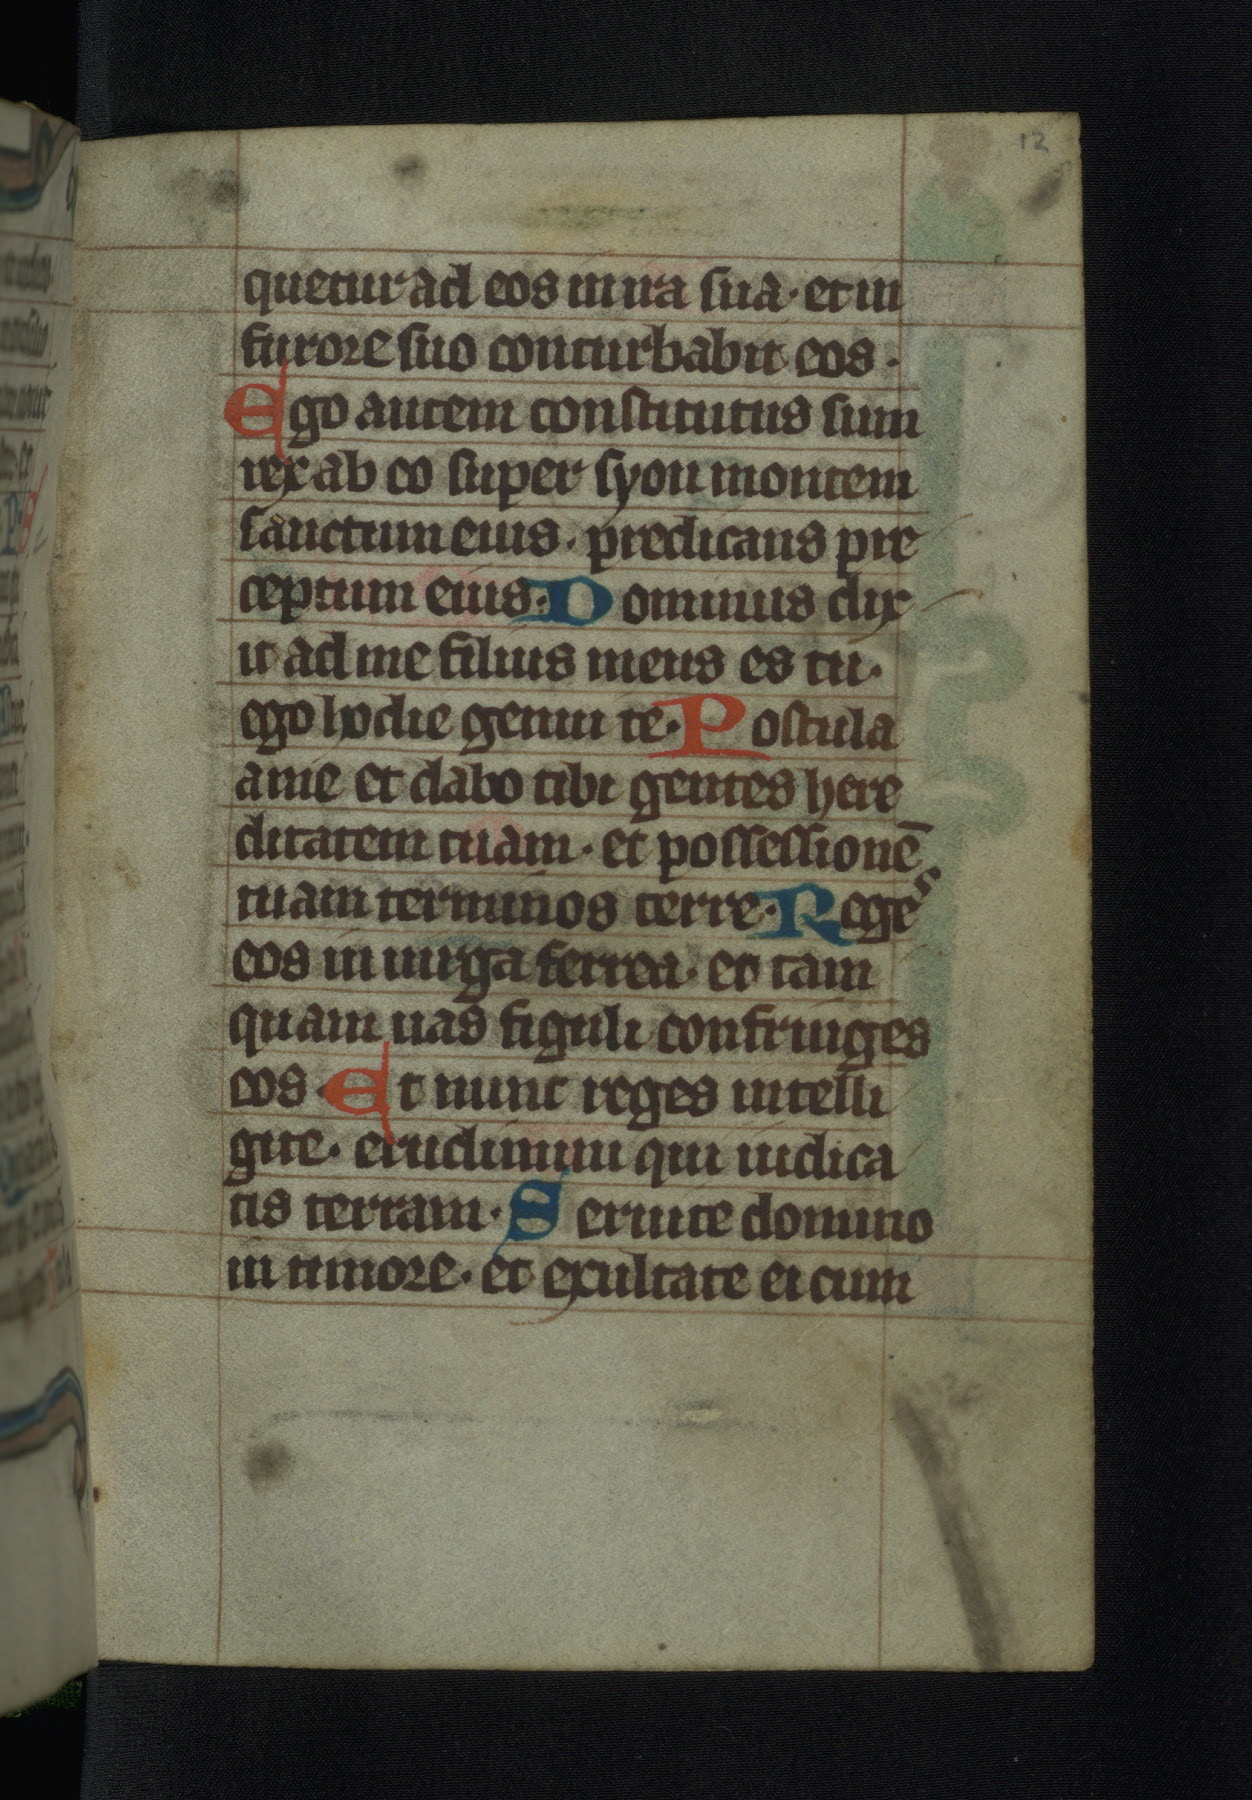 12
quetur ad eos in ira sua· et in
furore suo conturbabit eos·
Ego autem constitutus sum
rex ab eo super syon montem
sanctum eius· predicans pre
ceptum eius· Dominus dix
it ad me filius meus es tu·
ego hodie genui te· Postula
a me et dabo tibi gentes here
ditatem tuam· et possessionē
tuam terminos terre· Reges
eos in uirga ferrea· et tam
quam uas figuli confringes
eos· Et nunc reges intelli
gite· erudimini qui iudica
tis terram· Seruite domino
in timore· et exultate ei cum